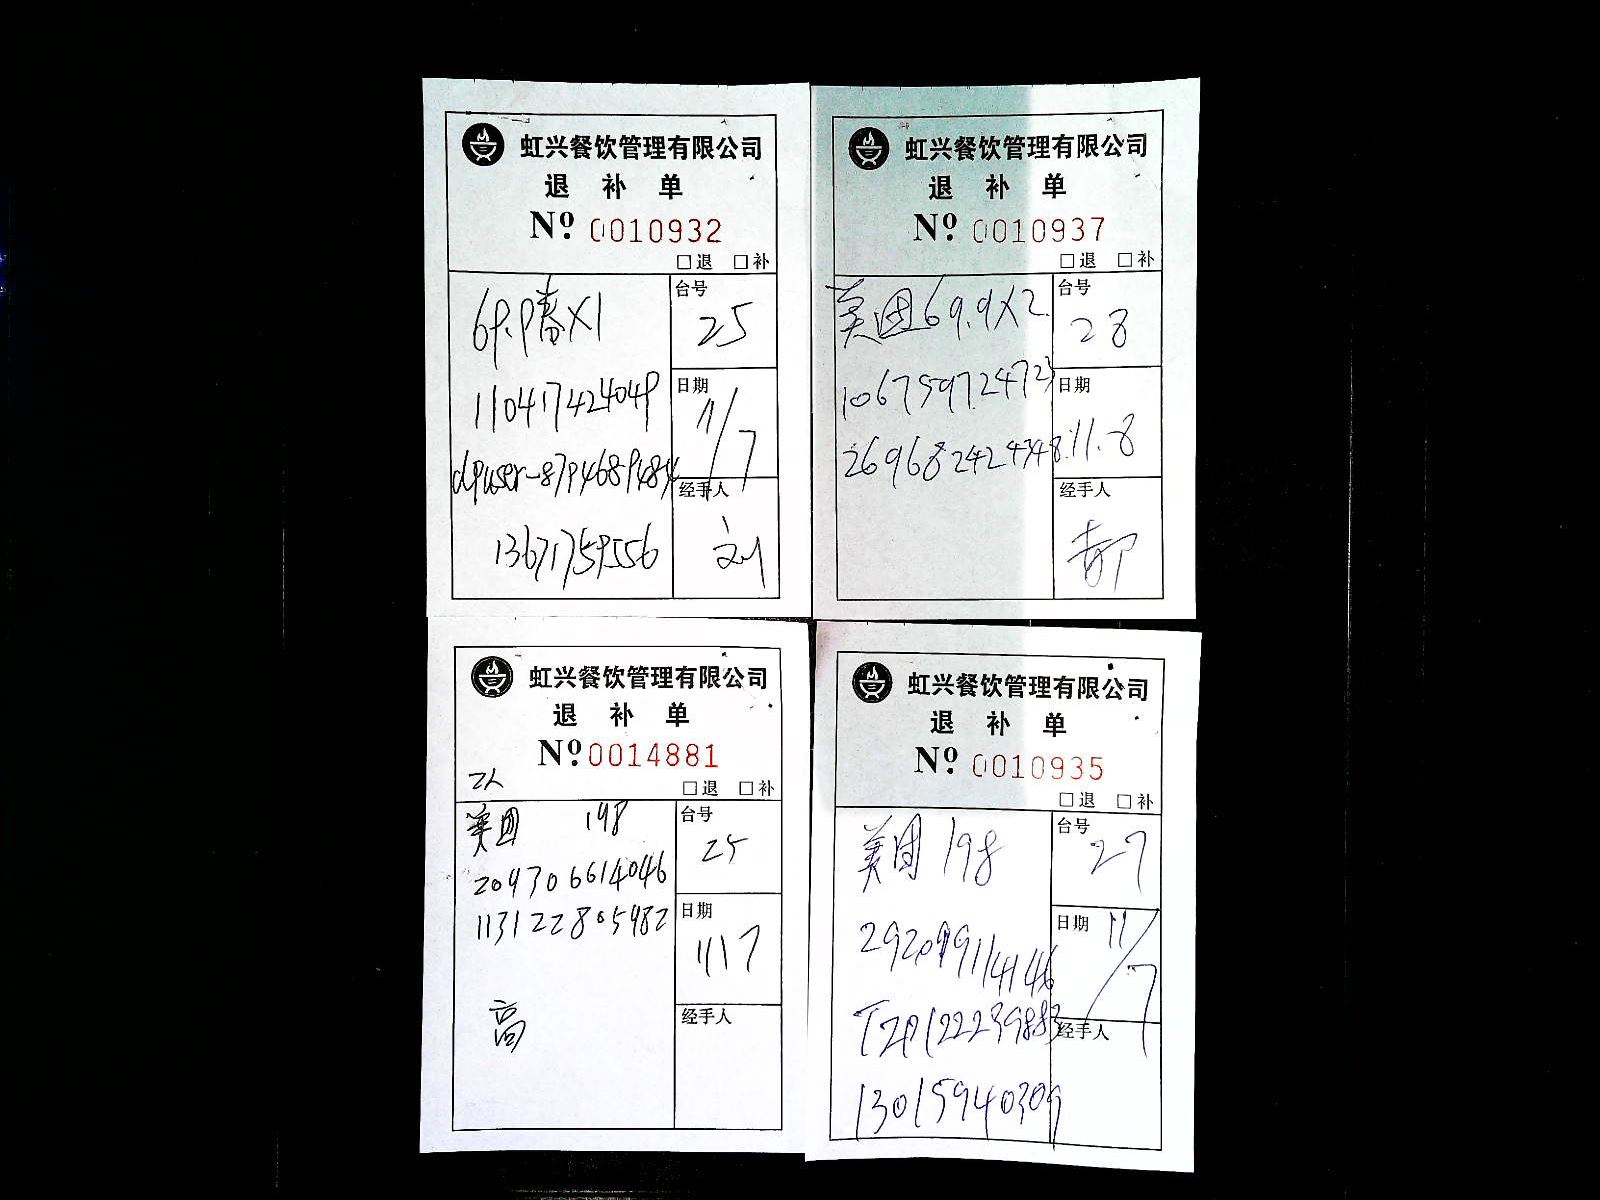 虹兴餐饮管理有限公司
退 补 单
Nº 0010932
□退 □补
69.9 X1
台号
25
110417424049
日期
11/7
dpuser-8794689484
经手人
刘
13671759556
虹兴餐饮管理有限公司
退 补 单
Nº 0010937
□退 □补
美团69.9X2
台号
28
106759724723
日期
11.8
269682424748
经手人
郝
虹兴餐饮管理有限公司
退 补 单
Nº 0014881
□退 □补
2人
美团 198
台号
25
2047306614046
113122805982
日期
11 7
经手人
高
虹兴餐饮管理有限公司
退 补 单
Nº 0010935
□退 □补
美团 198
台号
27
日期
11/7
经手人
13015940309